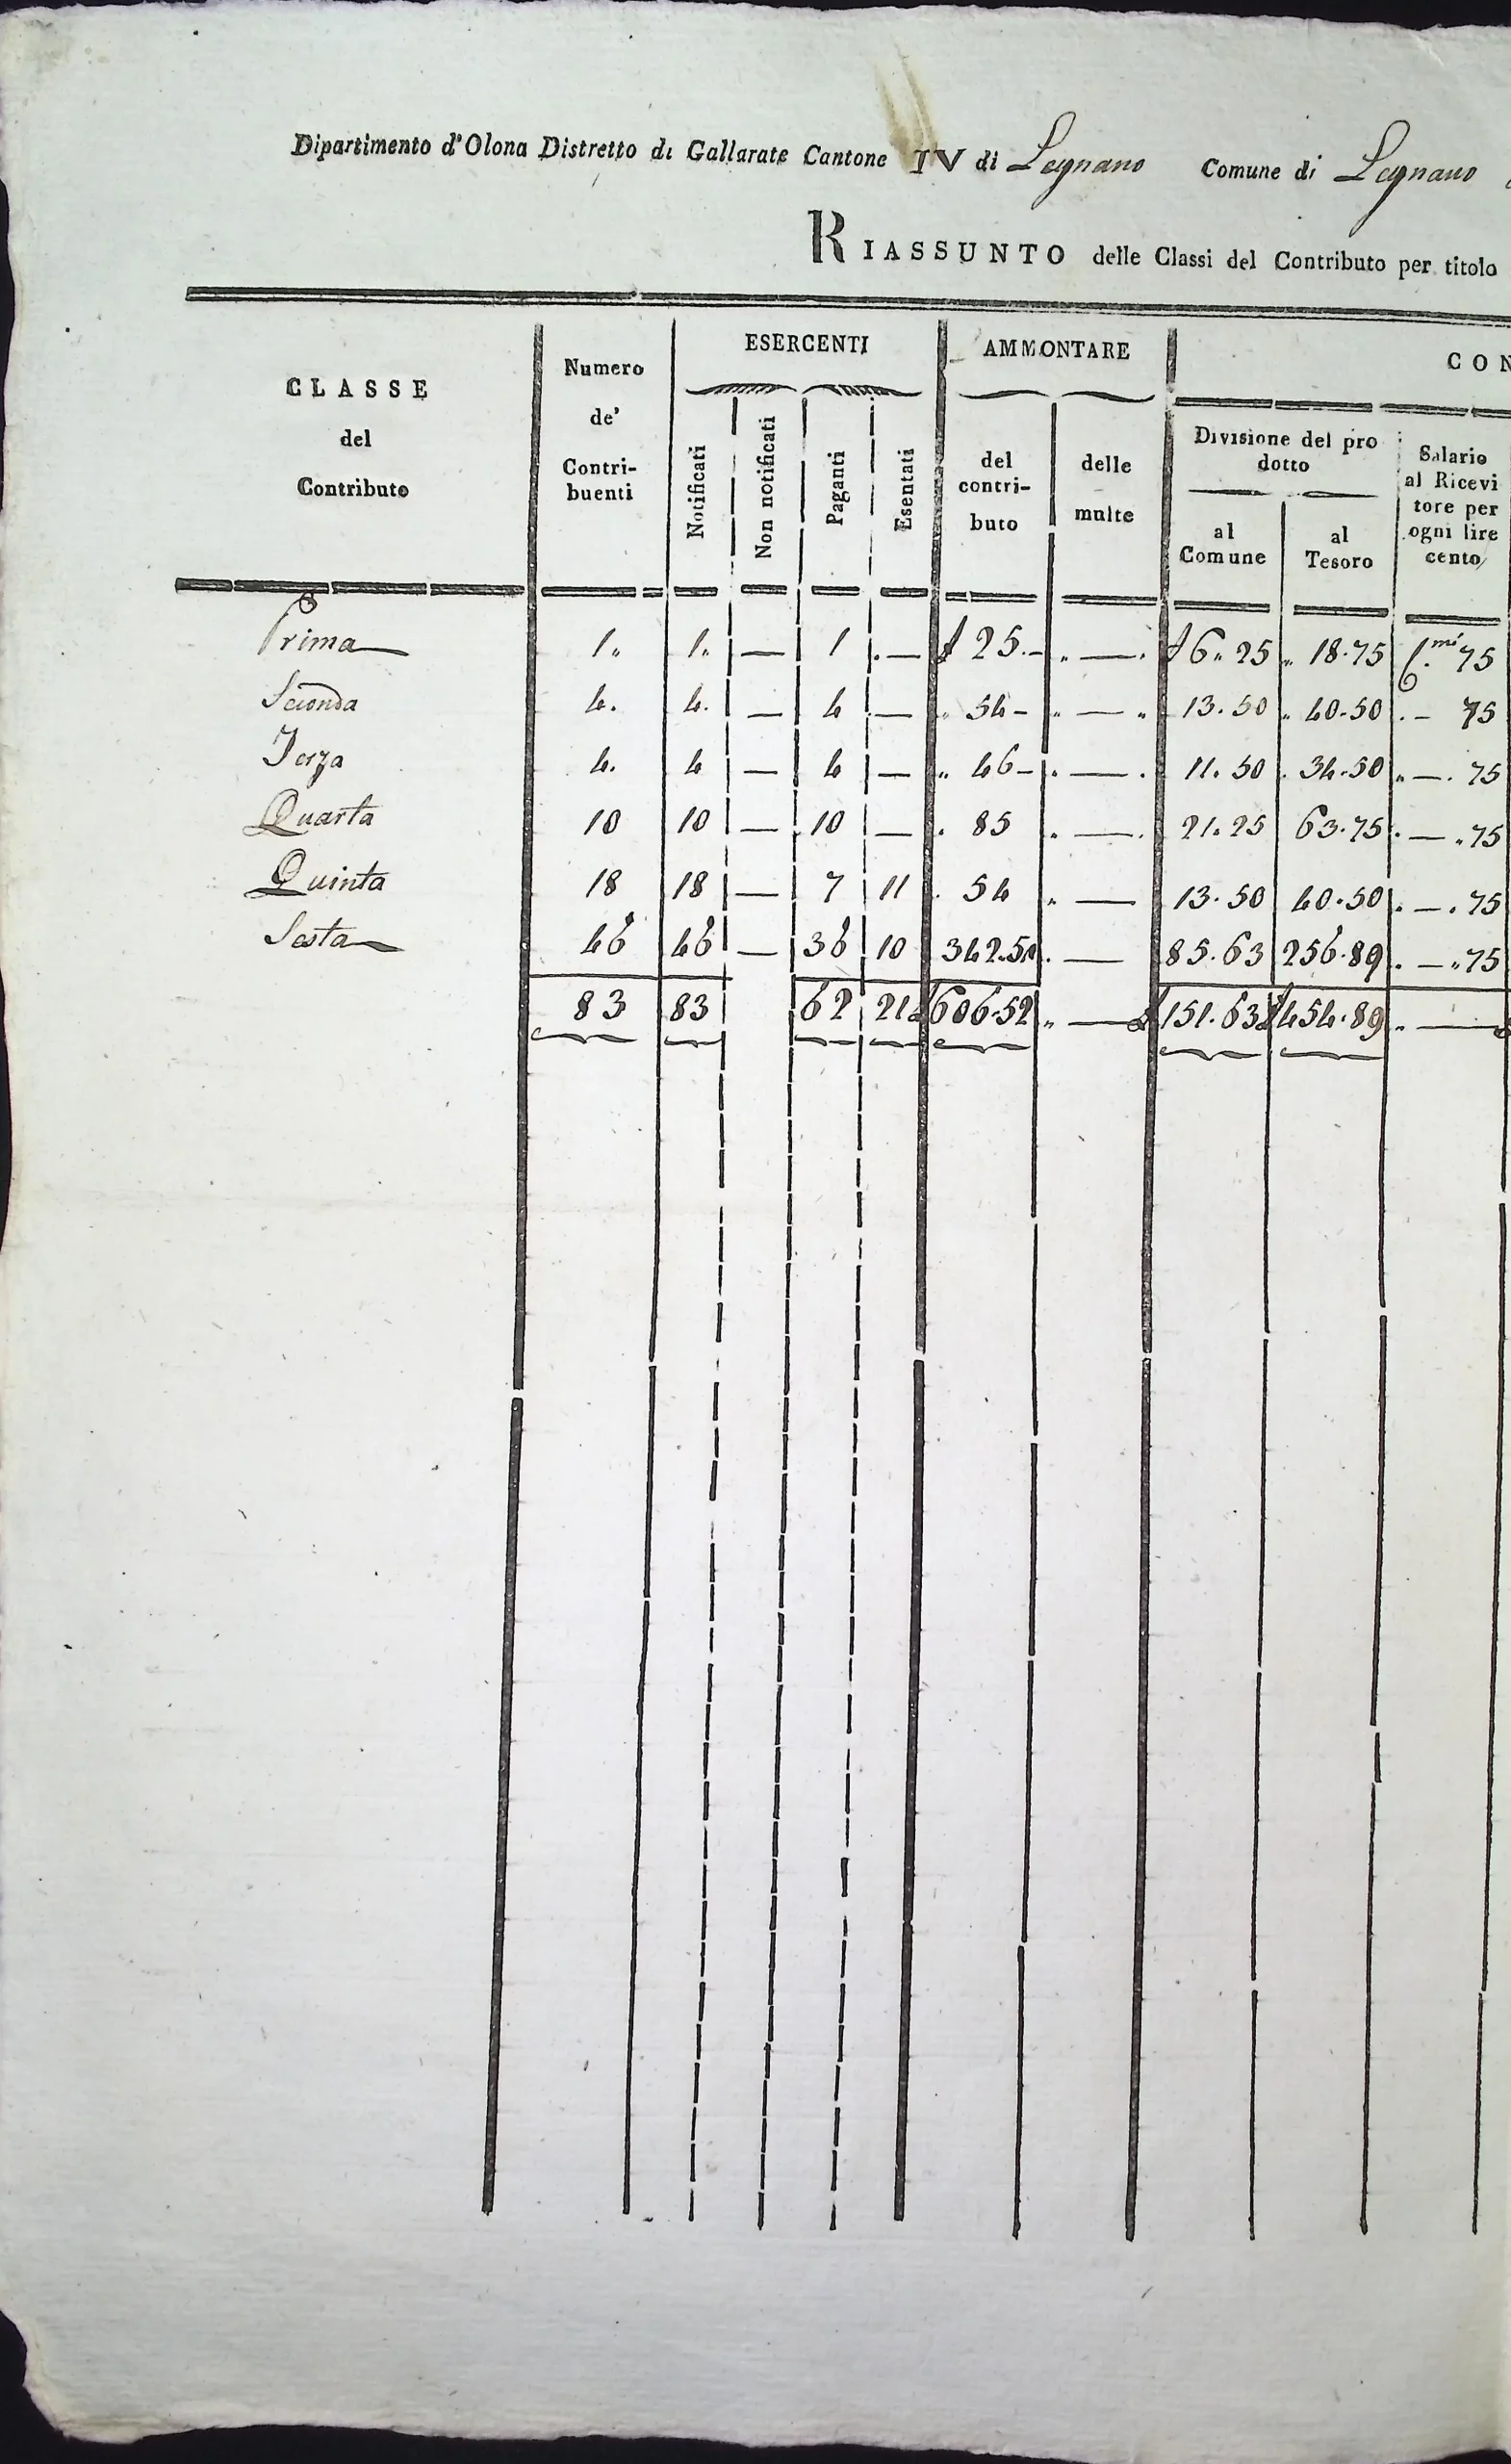 Dipartimento d'Olona Distretto di Gallarate Cantone IV di Legnano Comune di Legnano
RIASSUNTO delle Classi del Contributo per titolo
CLASSE
del
Contributo
Numero
de'
Contri-
buenti
ESERCENTI
Notificati
Non notificati
Paganti
Esentati
AMMONTARE
del
contri-
buto
delle
multe
CON
Divisione del pro
dotto
al
Comune
al
Tesoro
Salario
al Ricevi
tore per
ogni lire
cento
Prima 1. 1. — 1 — £ 25.– „ — £ 6„25 „ 18.75 C.mi 75
Seconda 4. 4. — 4 — „ 54– „ — „ 13.50 „ 40.50 . – 75
Terza 4. 4 — 4 — „ 46– . — . 11.50 . 34.50 „ — . 75
Quarta 10 10 — 10 — . 85 „ — . 21.25 63.75 . — . 75
Quinta 18 18 — 7 11 . 54 „ — 13.50 40.50 . — . 75
Sesta 46 46 — 36 10 342.52 . — 85.63 256.89 . — „ 75
83 83 62 21 £ 606.52 „ — £ 151.63 £ 454.89 „ —